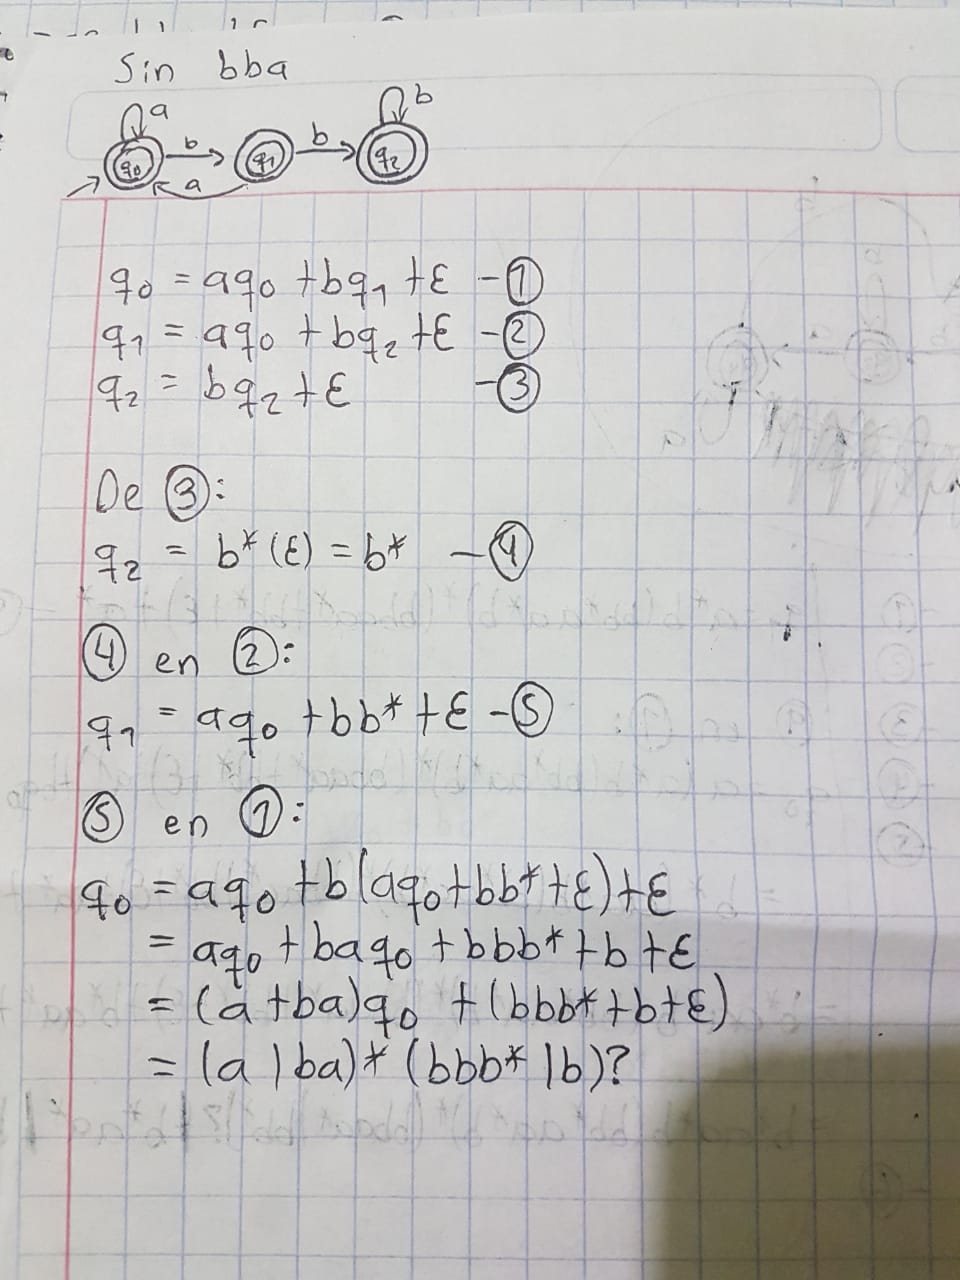 Sin bba
a b
b b
q0 q1 q2
a
q0 = aq0 + bq1 + ε - ①
q1 = aq0 + bq2 + ε - ②
q2 = bq2 + ε - ③
De ③:
q2 = b* (ε) = b* - ④
④ en ②:
q1 = aq0 + bb* + ε - ⑤
⑤ en ①:
q0 = aq0 + b(aq0 + bb* + ε) + ε
= aq0 + baq0 + bbb* + b + ε
= (a + ba)q0 + (bbb* + b + ε)
= (a | ba)* (bbb* | b)?